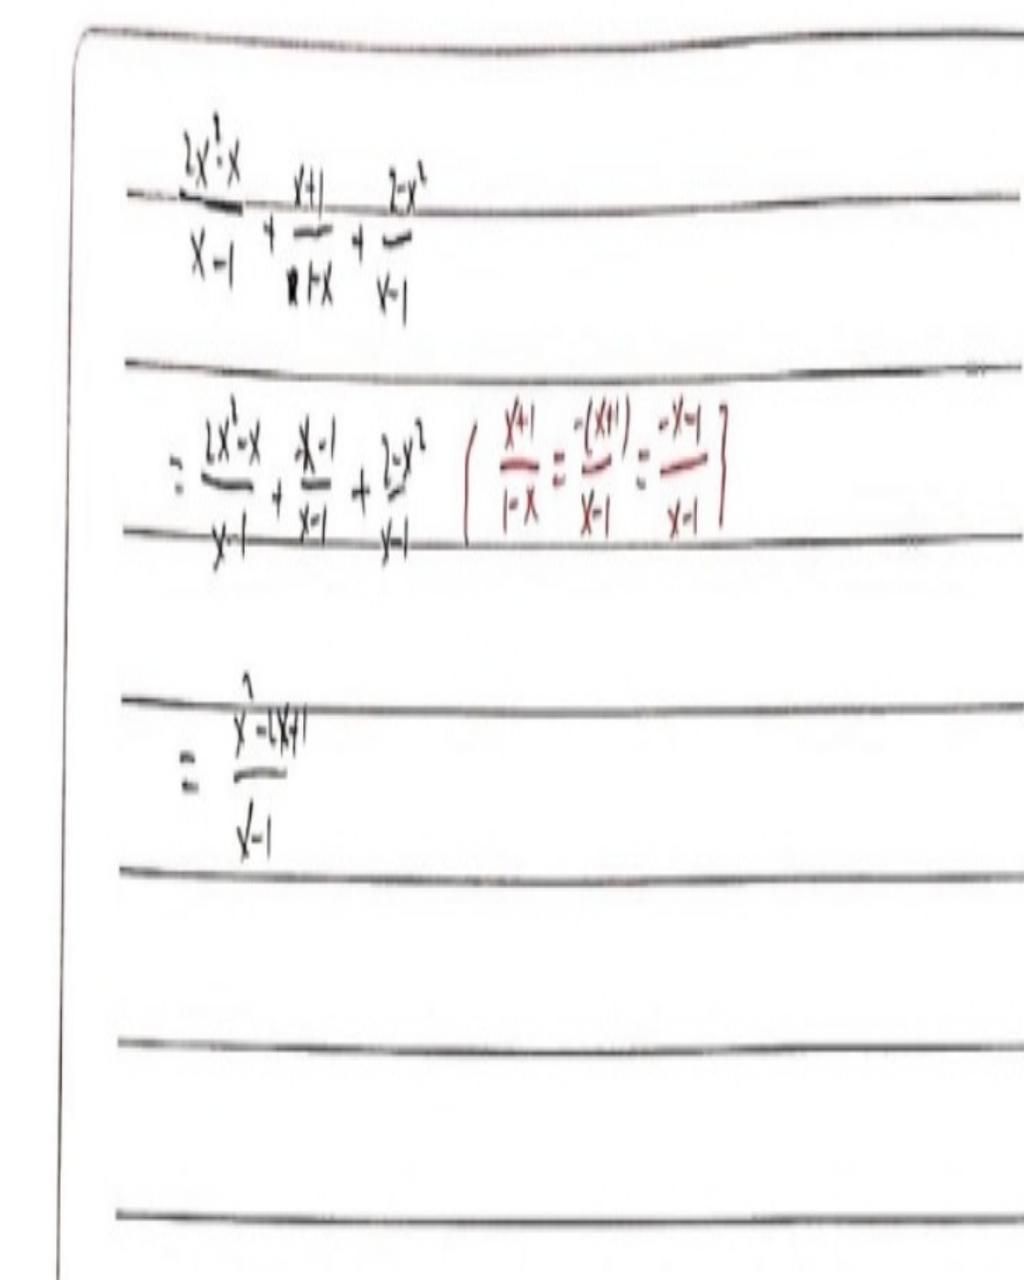 (2x²-x)/(x-1) + (x+1)/(1-x) + (2-x²)/(x-1)
= (2x²-x)/(x-1) + (-x-1)/(x-1) + (2-x²)/(x-1) [(x+1)/(1-x) = (-(x+1))/(x-1) = (-x-1)/(x-1)]
= (x²-2x+1)/(x-1)